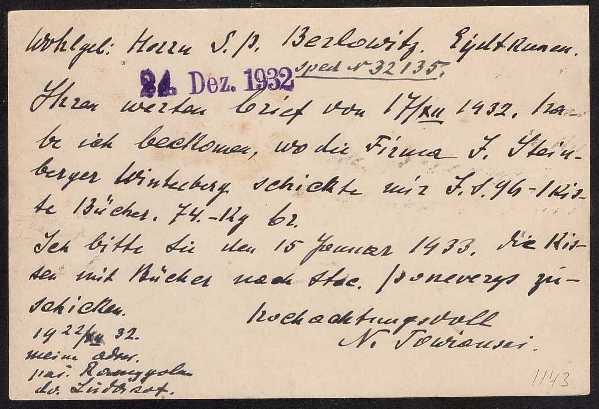 Wohlgeb: Herrn S. P. Berlowitz. Eydtkunen.
sped N 32135.
24. Dez. 1932
Ihren werten brief von 17/XII 1932. ha-
be ich beckomen, wo die Firma J. Stein-
berger Winterberg. schickte mir J. S. 94 - 1 Kis-
te Bücher. 74.-Kg br.
Ich bitte Sie den 15 Januar 1933. die Kis-
sen mit Bücher nach Stac. Poneverys zu-
schicken.
hochachtungsvoll
19 22/XII 32.
N.
meine adr.
paš.
dv.
1143